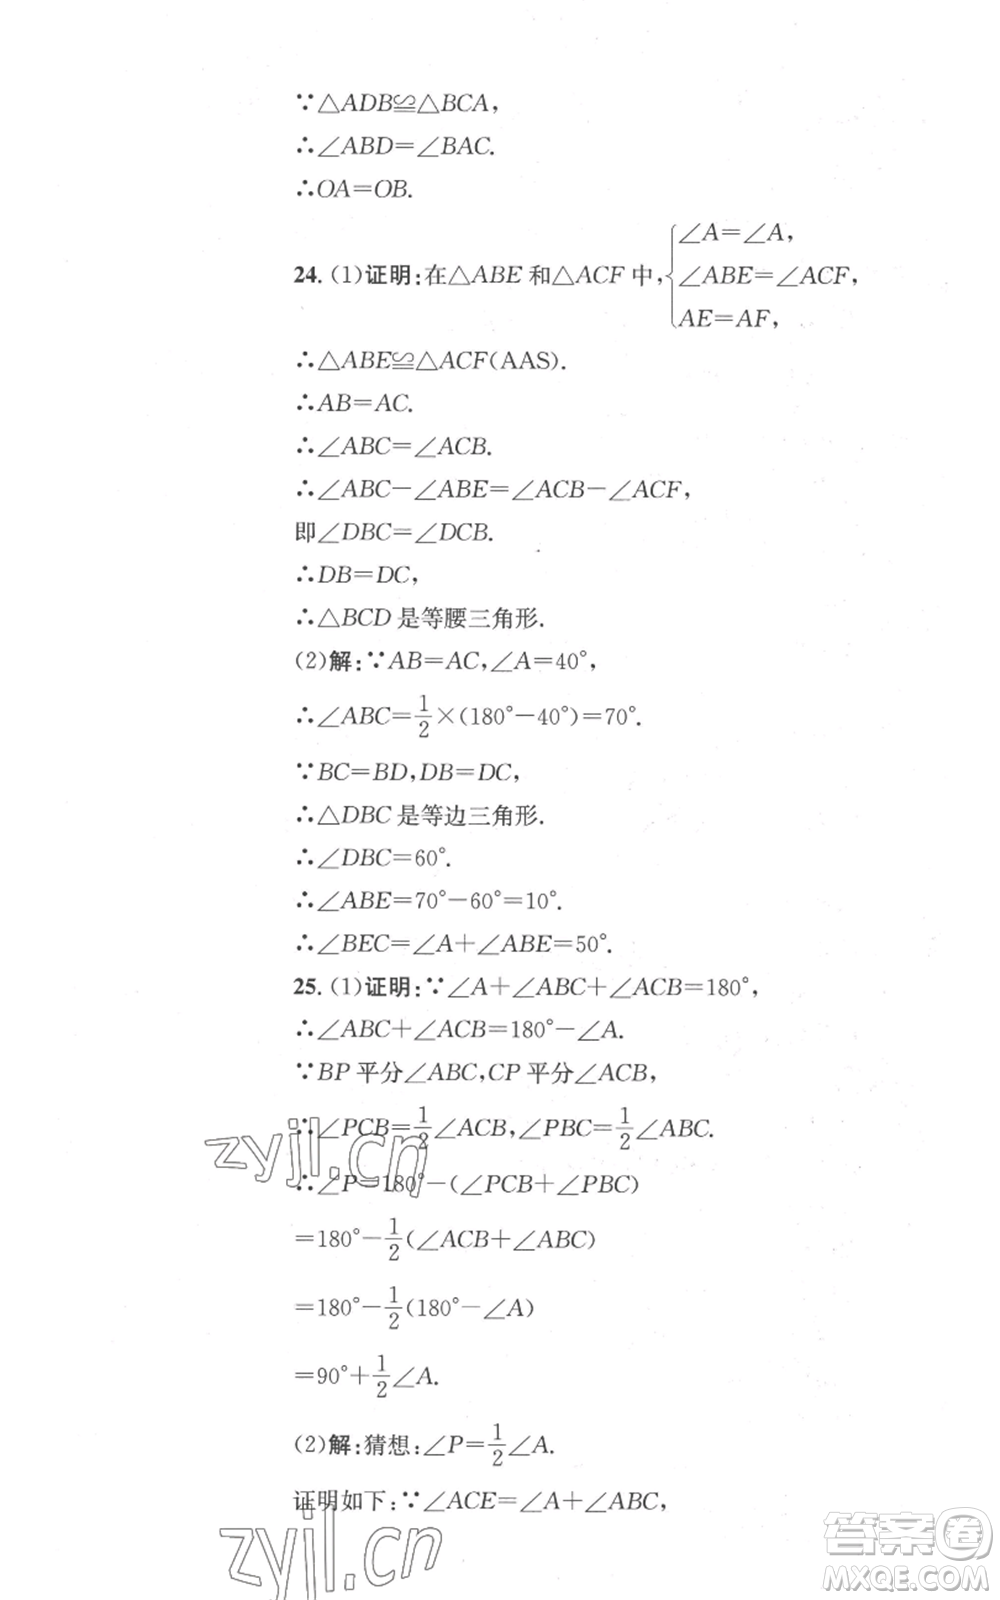 ∵△ADB≌△BCA,
∴∠ABD=∠BAC.
∴OA=OB.
24. (1)证明:在△ABE 和△ACF 中,{∠A=∠A,
∠ABE=∠ACF,
AE=AF,
∴△ABE≌△ACF(AAS).
∴AB=AC.
∴∠ABC=∠ACB.
∴∠ABC-∠ABE=∠ACB-∠ACF,
即∠DBC=∠DCB.
∴DB=DC,
∴△BCD 是等腰三角形.
(2)解:∵AB=AC,∠A=40°,
∴∠ABC=1/2×(180°-40°)=70°.
∵BC=BD,DB=DC,
∴△DBC 是等边三角形.
∴∠DBC=60°.
∴∠ABE=70°-60°=10°.
∴∠BEC=∠A+∠ABE=50°.
25. (1)证明:∵∠A+∠ABC+∠ACB=180°,
∴∠ABC+∠ACB=180°-∠A.
∵BP 平分∠ABC,CP 平分∠ACB,
∴∠PCB=1/2∠ACB,∠PBC=1/2∠ABC.
zyjl.cn
∴∠P=180°-(∠PCB+∠PBC)
=180°-1/2(∠ACB+∠ABC)
=180°-1/2(180°-∠A)
=90°+1/2∠A.
(2)解:猜想:∠P=1/2∠A.
证明如下:∵∠ACE=∠A+∠ABC,
zyjl.cn
答案圈
MXQE.COM